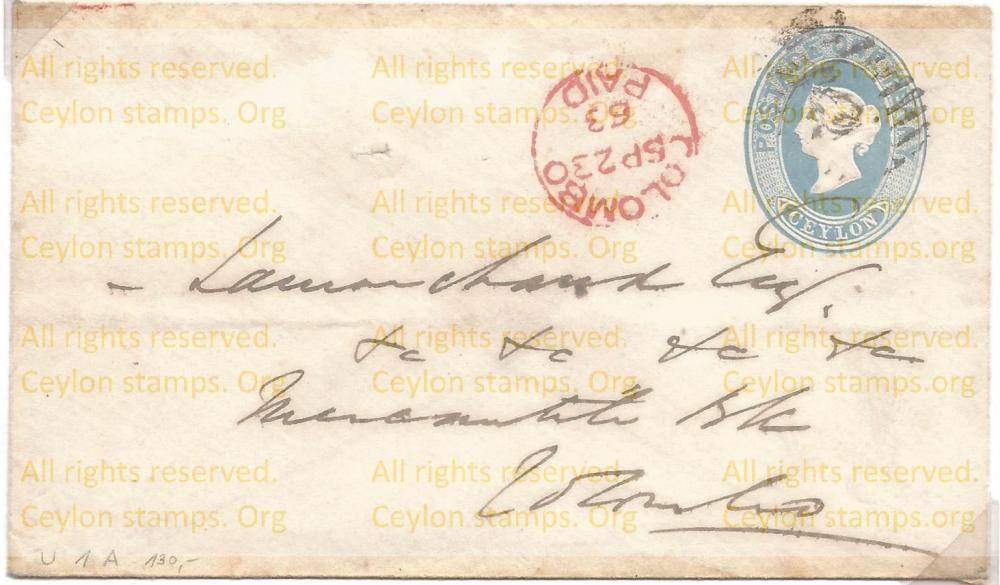 All rights reserved. All rights reserved. All rights reserved.
Ceylon stamps. Org Ceylon stamps. Org Ceylon stamps. Org
POSTAGE ONE PENNY
CEYLON
COLOMBO
PAID
63
SP 23
All rights reserved. All rights reserved. All rights reserved.
Ceylon stamps. Org Ceylon stamps. Org Ceylon stamps. Org
Esq.
All rights reserved. All rights reserved. All rights reserved.
&c &c &c &c
Ceylon stamps. Org Ceylon stamps. Org Ceylon stamps.org
Mercantile Bk
All rights reserved. All rights reserved. All rights reserved.
Ceylon stamps. Org Ceylon stamps. Org Ceylon stamps. Org
Colombo
U 1 A 130,-